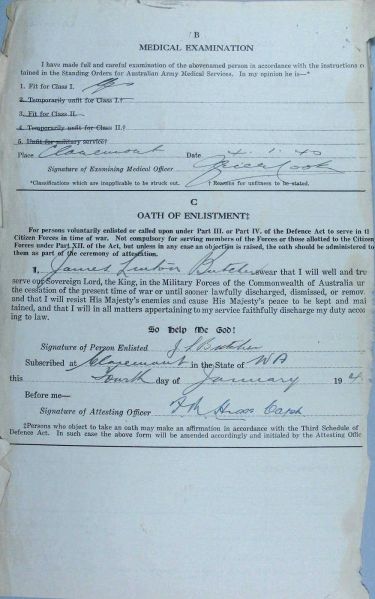 B
MEDICAL EXAMINATION
I have made full and careful examination of the abovenamed person in accordance with the instructions c
tained in the Standing Orders for Australian Army Medical Services. In my opinion he is—*
1. Fit for Class I.
2. Temporarily unfit for Class I.†
3. Fit for Class II.
4. Temporarily unfit for Class II.†
5. Unfit for military service†
Place Claremont Date 4. 1. 40
Signature of Examining Medical Officer
*Classifications which are inapplicable to be struck out. † Reasons for unfitness to be stated.
C
OATH OF ENLISTMENT‡
For persons voluntarily enlisted or called upon under Part III. or Part IV. of the Defence Act to serve in tl
Citizen Forces in time of war. Not compulsory for serving members of the Forces or those allotted to the Citizen
Forces under Part XII. of the Act, but unless in any case an objection is raised, the oath should be administered to
them as part of the ceremony of attestation.
I, James Linton Butcher swear that I will well and tru
serve our Sovereign Lord, the King, in the Military Forces of the Commonwealth of Australia ur
the cessation of the present time of war or until sooner lawfully discharged, dismissed, or remov
and that I will resist His Majesty's enemies and cause His Majesty's peace to be kept and mai
tained, and that I will in all matters appertaining to my service faithfully discharge my duty accor
ing to law.
So Help Me God!
Signature of Person Enlisted J L Butcher
Subscribed at Claremont in the State of WA
this Fourth day of January 194
Before me—
Signature of Attesting Officer Capt
‡Persons who object to take an oath may make an affirmation in accordance with the Third Schedule of
Defence Act. In such case the above form will be amended accordingly and initialed by the Attesting Offic